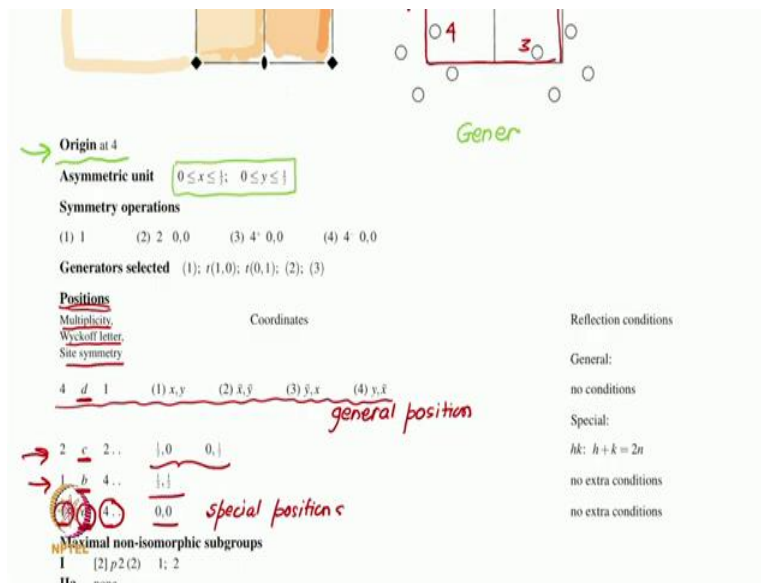 4
3
Gener
Origin at 4
Asymmetric unit 0 ≤ x ≤ ½; 0 ≤ y ≤ ½
Symmetry operations
(1) 1 (2) 2 0,0 (3) 4⁺ 0,0 (4) 4⁻ 0,0
Generators selected (1); t(1,0); t(0,1); (2); (3)
Positions
Multiplicity, Coordinates Reflection conditions
Wyckoff letter,
Site symmetry
General:
4 d 1 (1) x,y (2) x̄,ȳ (3) ȳ,x (4) y,x̄ no conditions
general position
Special:
2 c 2 . . ½,0 0,½ hk: h + k = 2n
1 b 4 . . ½,½ no extra conditions
4 . . 0,0 special positions no extra conditions
NPTEL
Maximal non-isomorphic subgroups
I [2] p2 (2) 1; 2
IIa none